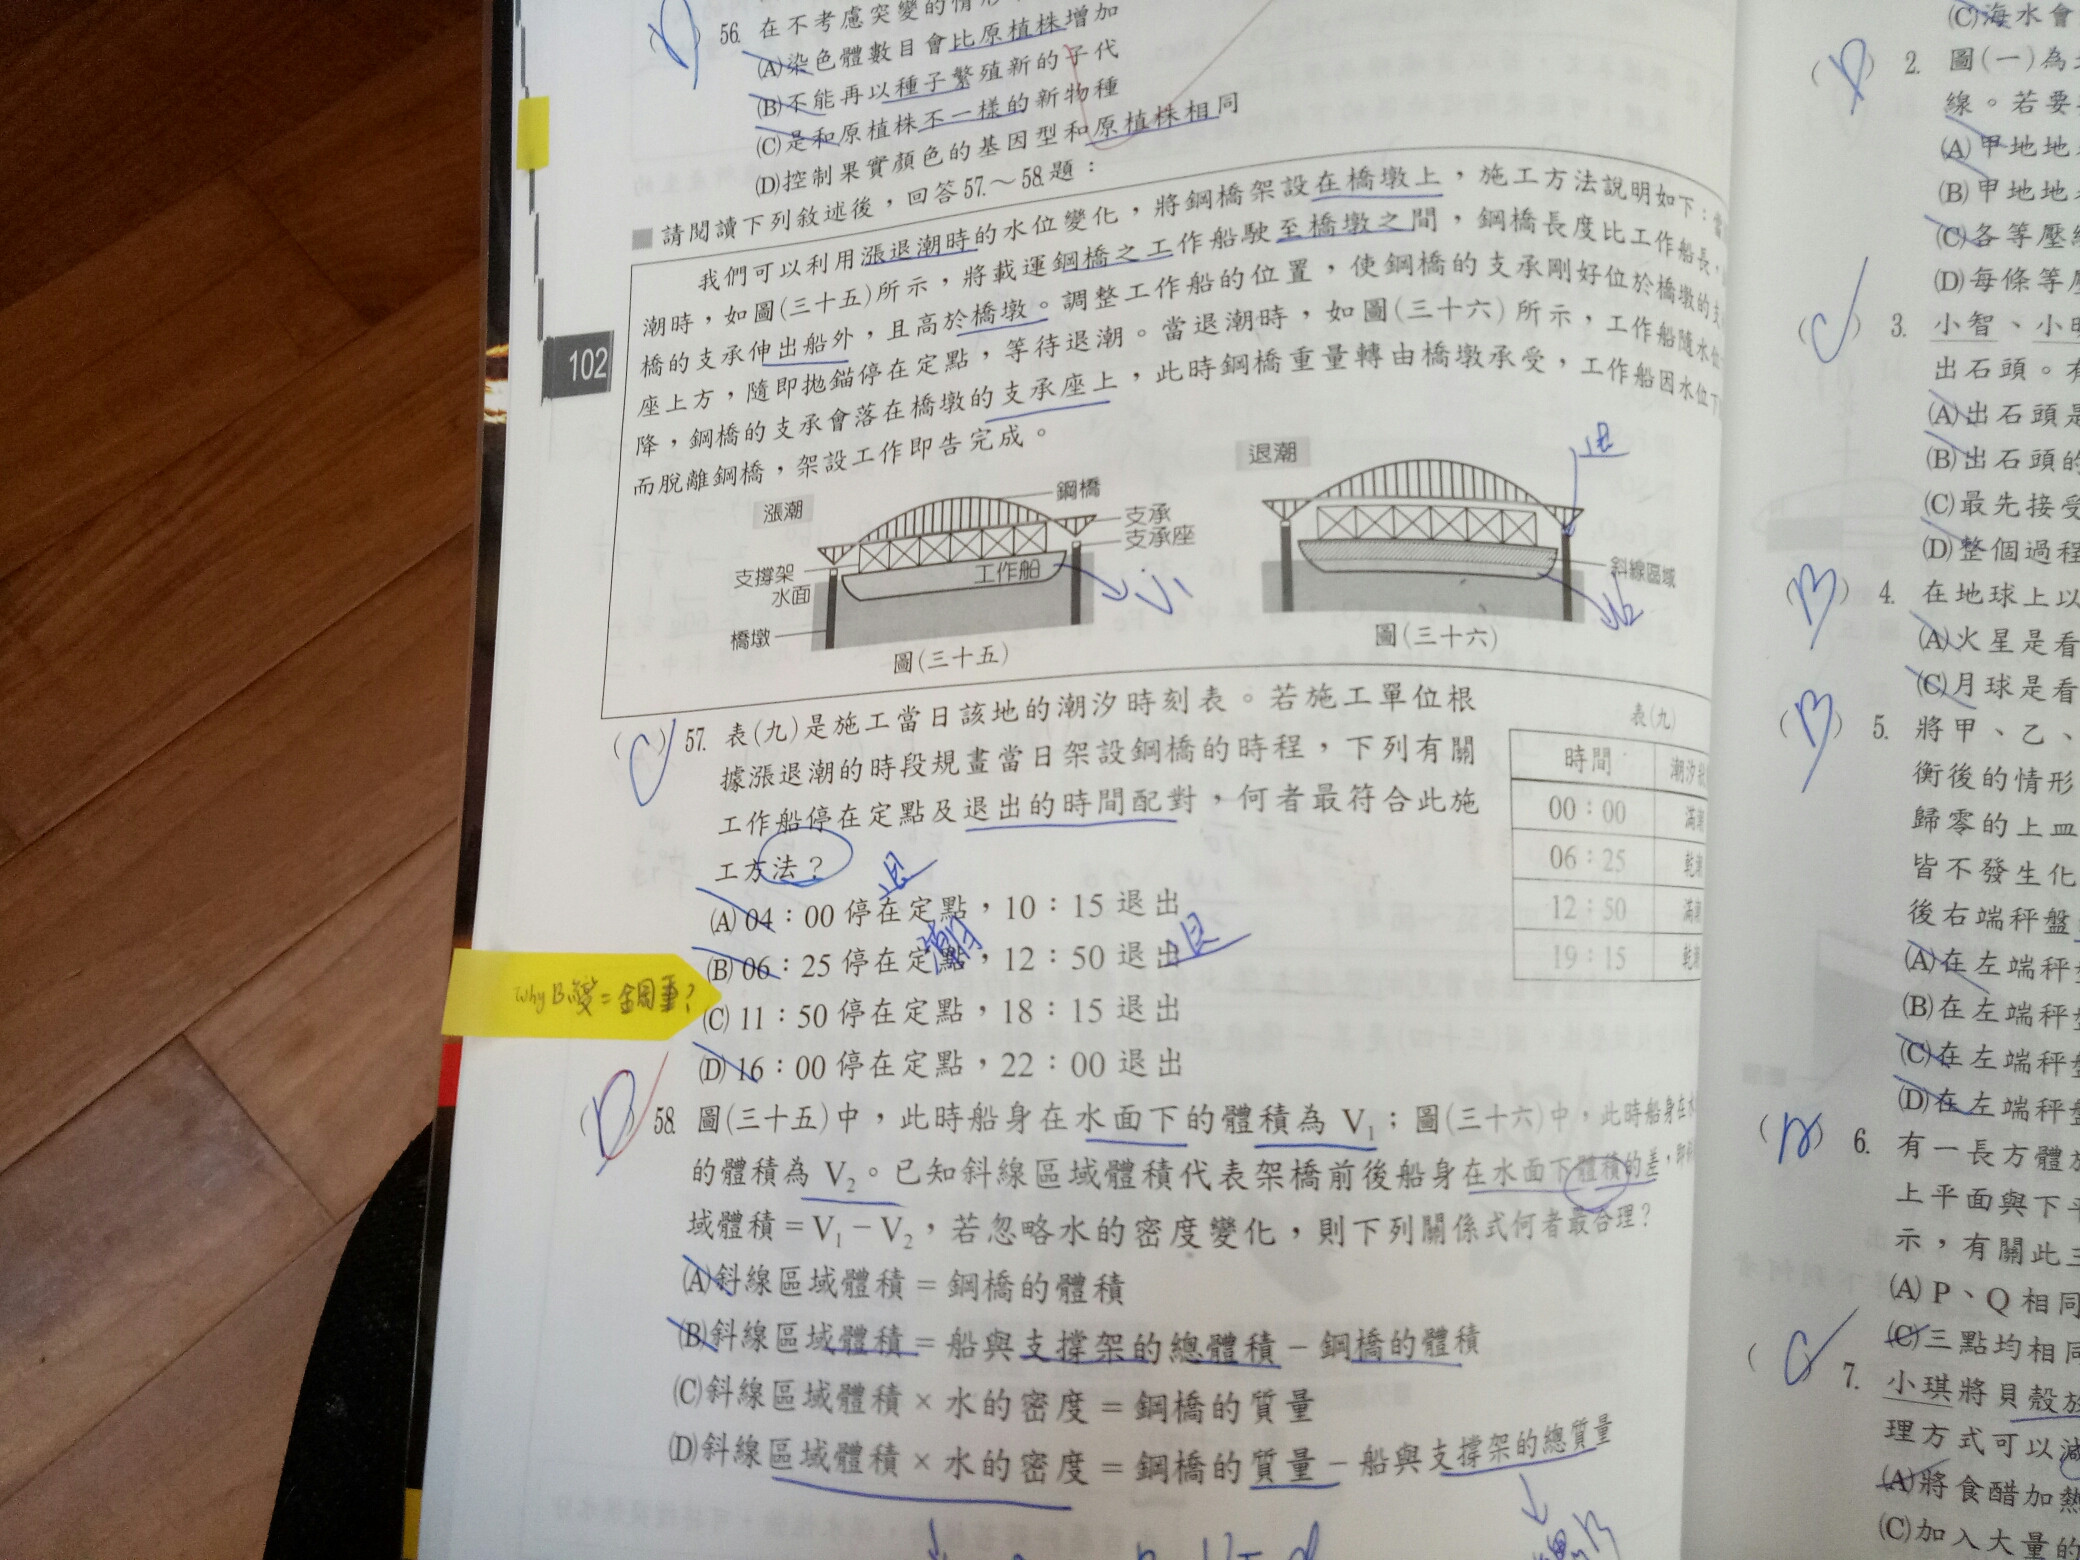 56. 在不考慮突變的情形
(A)染色體數目會比原植株增加
(B)不能再以種子繁殖新的子代
(C)是和原植株不一樣的新物種
(D)控制果實顏色的基因型和原植株相同
請閱讀下列敘述後，回答57.～58.題：
我們可以利用漲退潮時的水位變化，將鋼橋架設在橋墩上，施工方法說明如下：當
潮時，如圖(三十五)所示，將載運鋼橋之工作船駛至橋墩之間，鋼橋長度比工作船長，
橋的支承伸出船外，且高於橋墩。調整工作船的位置，使鋼橋的支承剛好位於橋墩的支
座上方，隨即拋錨停在定點，等待退潮。當退潮時，如圖(三十六)所示，工作船隨水位
降，鋼橋的支承會落在橋墩的支承座上，此時鋼橋重量轉由橋墩承受，工作船因水位下
而脫離鋼橋，架設工作即告完成。
漲潮
鋼橋
支承
支承座
支撐架
水面
工作船
橋墩
圖(三十五)
退潮
退
斜線區域
圖(三十六)
V₁
V₂
102
(C) 57. 表(九)是施工當日該地的潮汐時刻表。若施工單位根
據漲退潮的時段規畫當日架設鋼橋的時程，下列有關
工作船停在定點及退出的時間配對，何者最符合此施
工方法？
(A) 04：00 停在定點，10：15 退出
(B) 06：25 停在定點，12：50 退出
(C) 11：50 停在定點，18：15 退出
(D) 16：00 停在定點，22：00 退出
退
潮
退
表(九)
時間 潮汐
00：00 滿
06：25 乾
12：50 滿
19：15 乾
Why B變=鋼重?
(D) 58. 圖(三十五)中，此時船身在水面下的體積為 V₁；圖(三十六)中，此時船身在水
的體積為 V₂。已知斜線區域體積代表架橋前後船身在水面下體積的差，即
域體積＝V₁－V₂，若忽略水的密度變化，則下列關係式何者最合理？
(A)斜線區域體積＝鋼橋的體積
(B)斜線區域體積＝船與支撐架的總體積－鋼橋的體積
(C)斜線區域體積×水的密度＝鋼橋的質量
(D)斜線區域體積×水的密度＝鋼橋的質量－船與支撐架的總質量
(C)海水會
(D) 2. 圖(一)為
線。若要
(A)甲地地
(B)甲地地
(C)各等壓
(D)每條等
(C) 3. 小智、小
出石頭。
(A)出石頭是
(B)出石頭的
(C)最先接受
(D)整個過程
(B) 4. 在地球上以
(A)火星是看
(C)月球是看
(B) 5. 將甲、乙、
衡後的情形
歸零的上皿
皆不發生化
後右端秤盤
(A)在左端秤
(B)在左端秤
(C)在左端秤盤
(D)在左端秤盤
6. 有一長方體
上平面與下平
示，有關此三
(A) P、Q 相同
(C)三點均相同
(C) 7. 小琪將貝殼放
理方式可以減
(A)將食醋加熱
(C)加入大量的